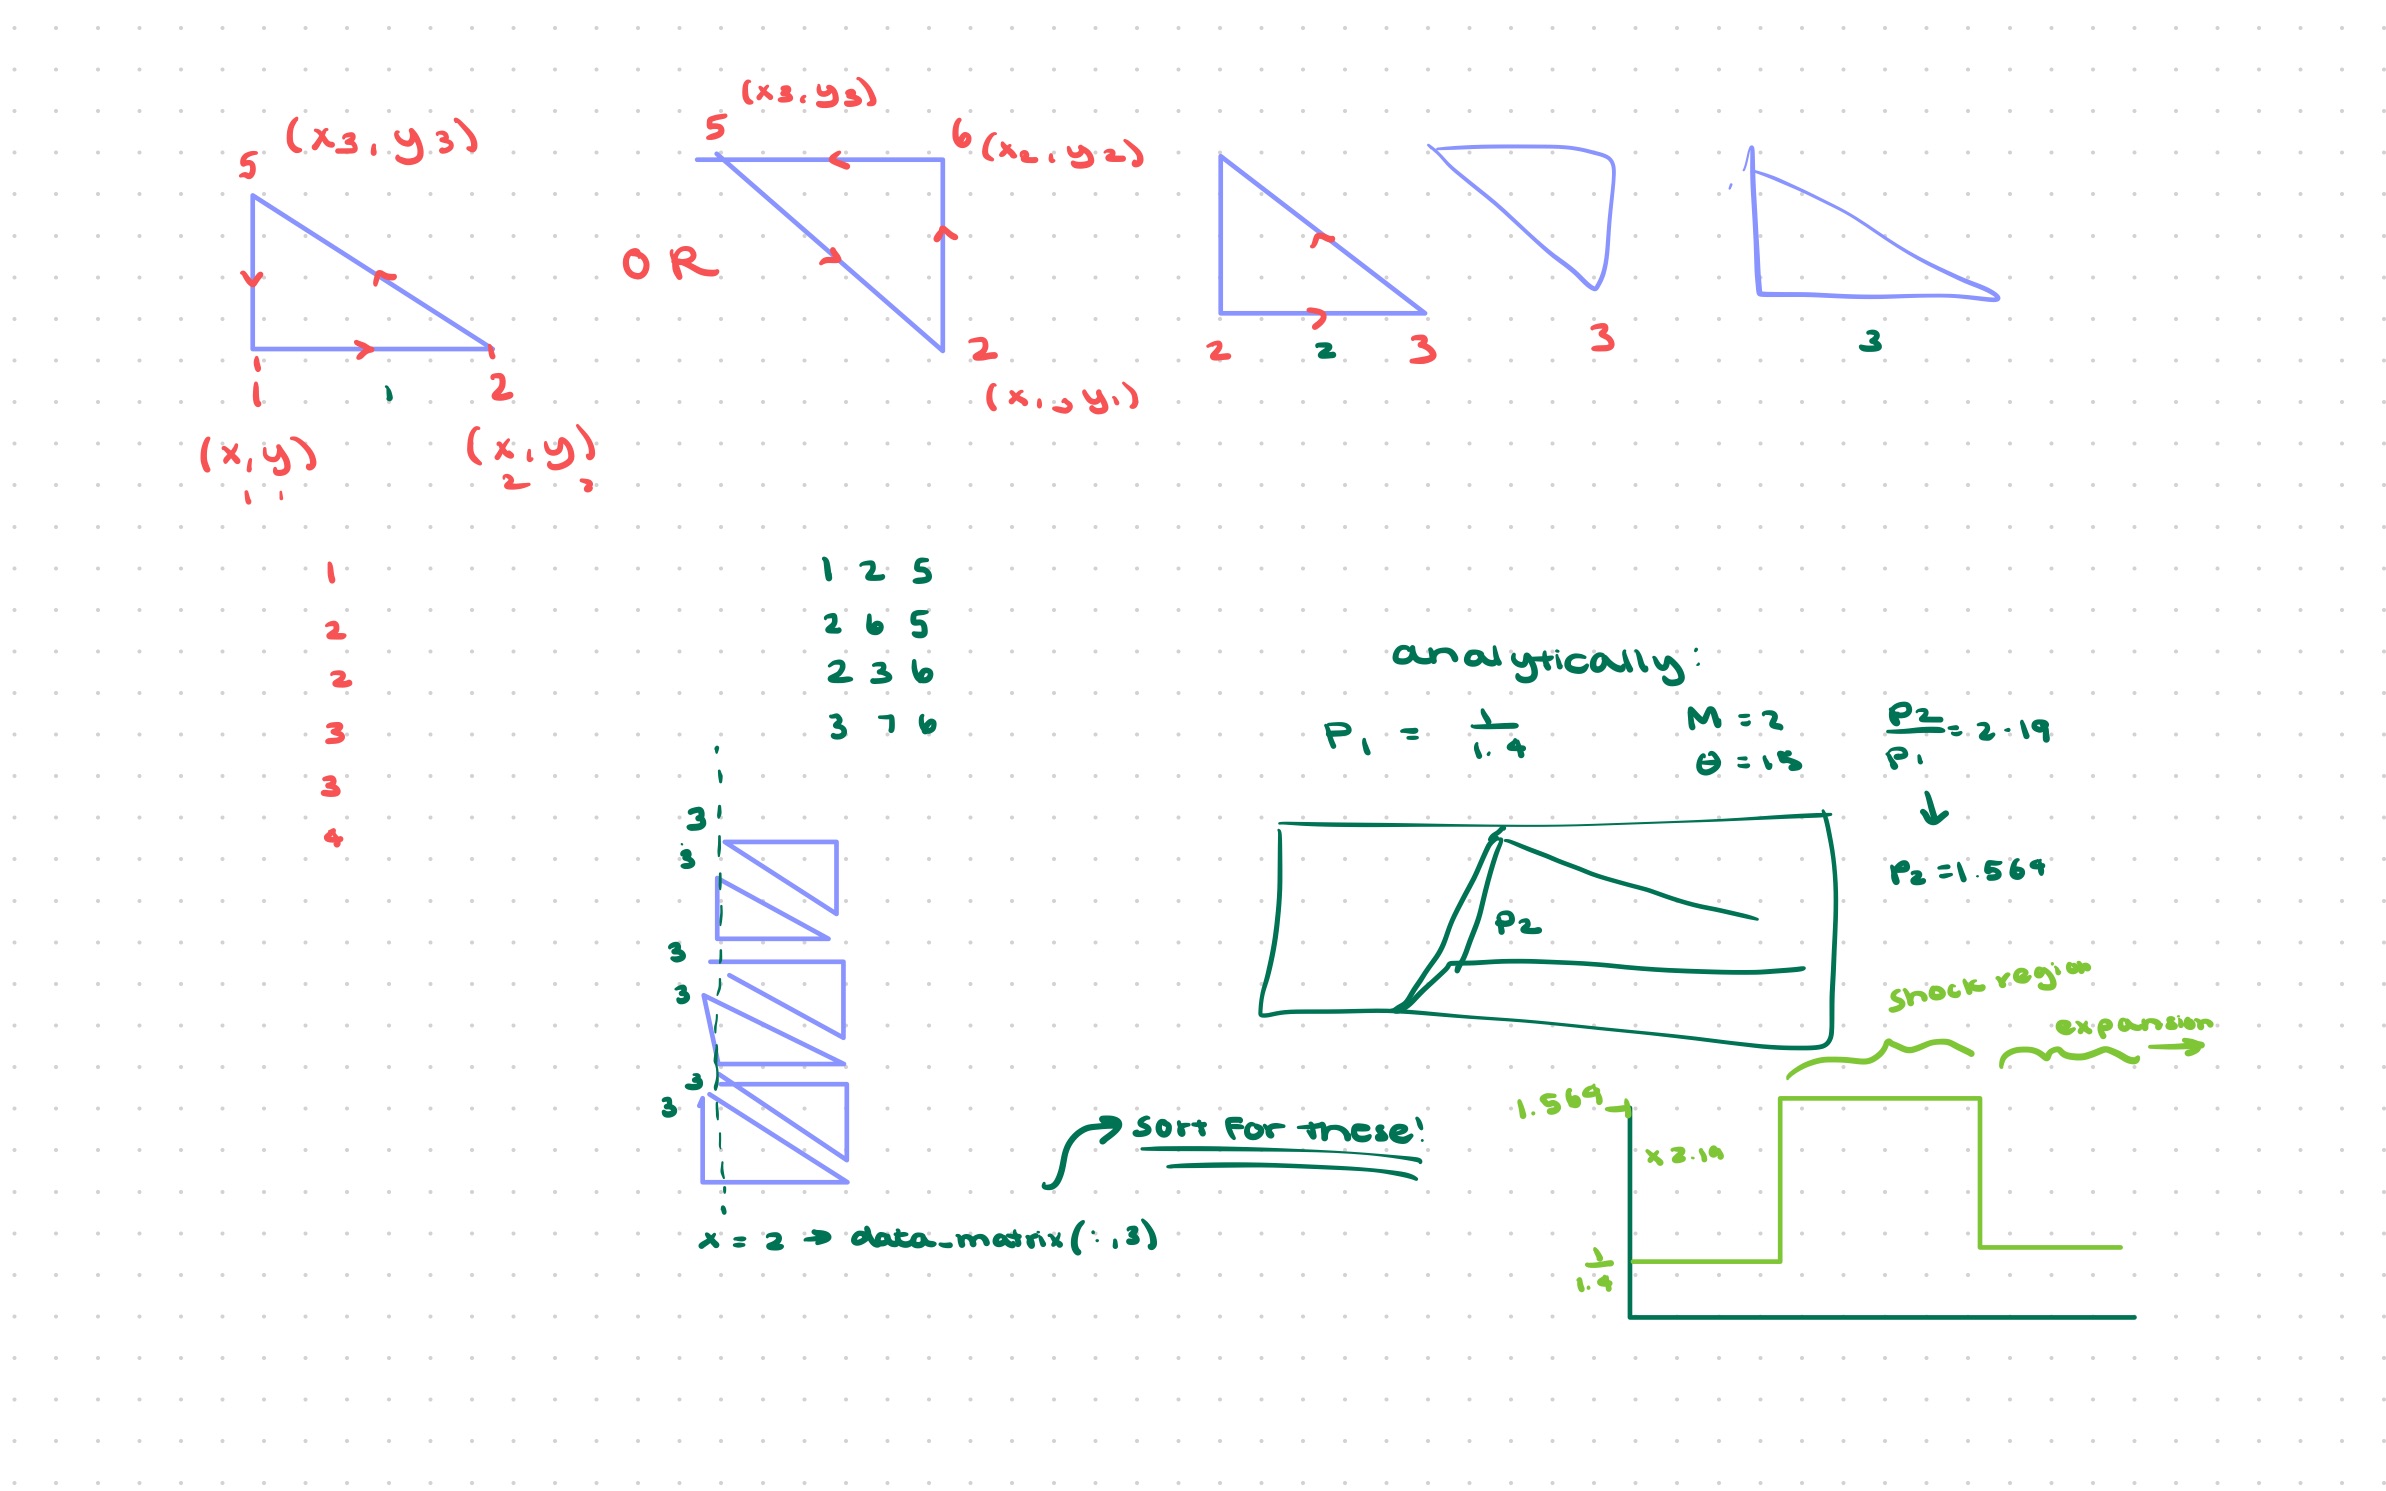 5 (x3, y3)
1
1
2
(x, y)
1 1
(x, y)
2 2
OR
(x3, y3)
5
6 (x2, y2)
2
(x1, y1)
2 2 3
3
3
1
2
2
3
3
4
1 2 5
2 6 5
2 3 6
3 7 6
3
3
3
3
3
3
x = 2 → data_matrix(:,3)
sort for these!
analytically:
P1 = 1/1.4
M = 2
θ = 15
P2/P1 = 2.19
↓
P2 = 1.564
P2
shock region
expansion →
1.564
x 2.19
1/1.4